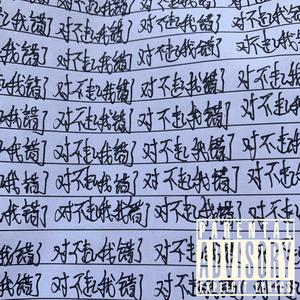 起我错了 对不起我错了 对不起我错了 对不起我错
起我错了 对不起我错了 对不起我错了 对不起我错
起我错了 对不起我错了 对不起我错了 对不起我错
起我错了 对不起我错了 对不起我错了 对不起我错
我错了 对不起我错了 对不起我错了 对不起我错
我错了 对不起我错了 对不起我错了 对不起我错
我错了 对不起我错了 对不起我错了 对不起我
我错了 对不起我错了 对不起我错了
我错了 对不起我错了 对不起我错了
PARENTAL
ADVISORY
EXPLICIT CONTENT